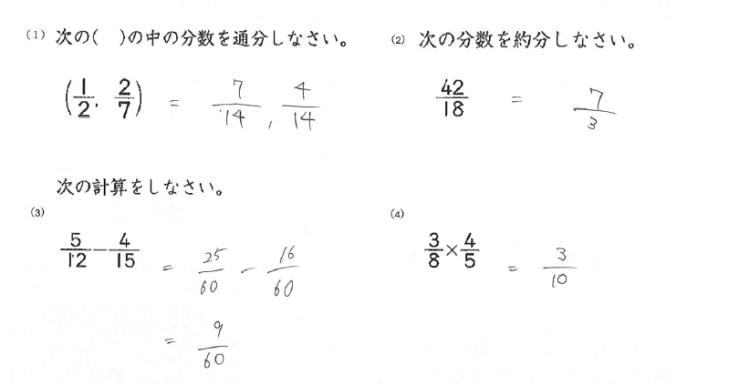 (1) 次の( )の中の分数を通分しなさい。
(1/2, 2/7) = 7/14, 4/14
(2) 次の分数を約分しなさい。
42/18 = 7/3
次の計算をしなさい。
(3) 5/12 - 4/15 = 25/60 - 16/60
= 9/60
(4) 3/8 × 4/5 = 3/10